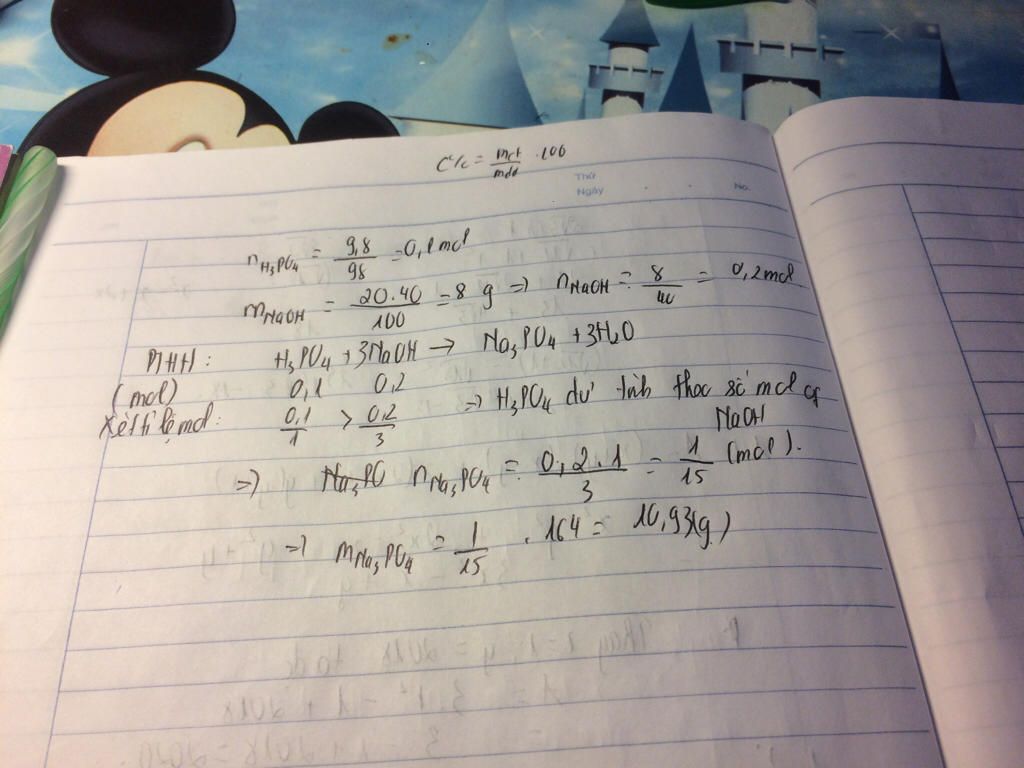 C% = mct/mdd . 100
Thứ
Ngày . . No.
nH₃PO₄ = 9,8/98 = 0,1 mol
mNaOH = 20.40/100 = 8 g => nNaOH = 8/40 = 0,2 mol
PTHH: H₃PO₄ + 3NaOH → Na₃PO₄ + 3H₂O
(mol) 0,1 0,2
Xét tỉ lệ mol: 0,1/1 > 0,2/3 => H₃PO₄ dư tính theo số mol của
NaOH
=> Na₃PO nNa₃PO₄ = 0,2.1/3 = 1/15 (mol).
=> mNa₃PO₄ = 1/15 . 164 = 10,93(g)